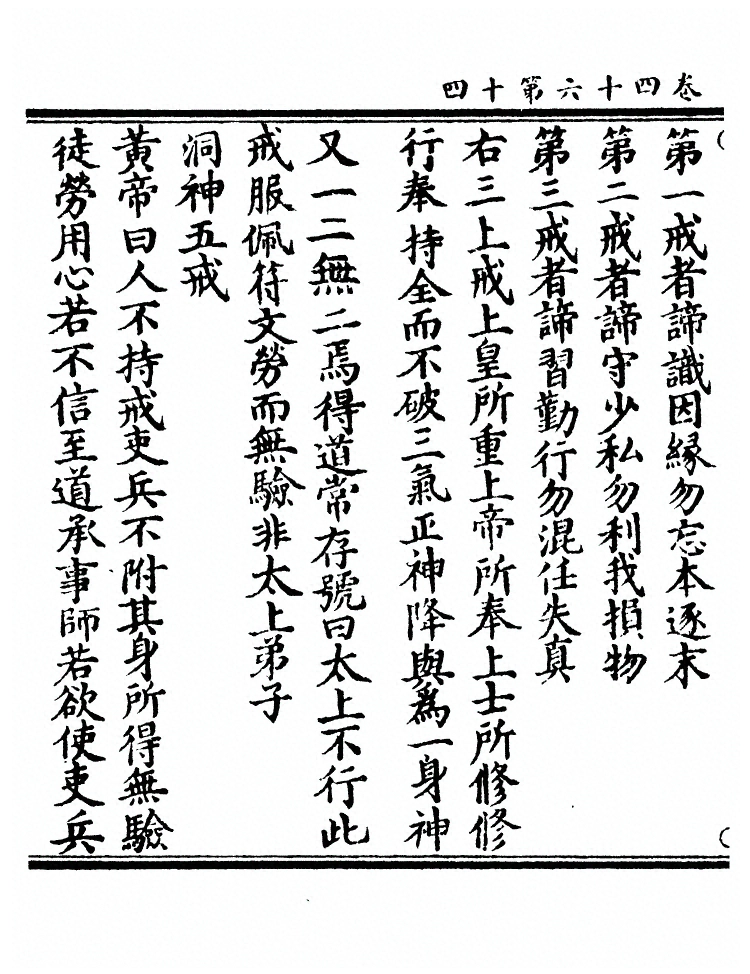 卷四十六第十四
第一戒者諦識因緣勿忘本逐末
第二戒者諦守少私勿利我損物
第三戒者諦習勤行勿混任失真
右三上戒上皇所重上帝所奉上士所修修
行奉持全而不破三氣正神降與為一身神
又一二無二焉得道常存號曰太上不行此
戒服佩符文勞而無驗非太上弟子
洞神五戒
黃帝曰人不持戒吏兵不附其身所得無驗
徒勞用心若不信至道承事師若欲使吏兵